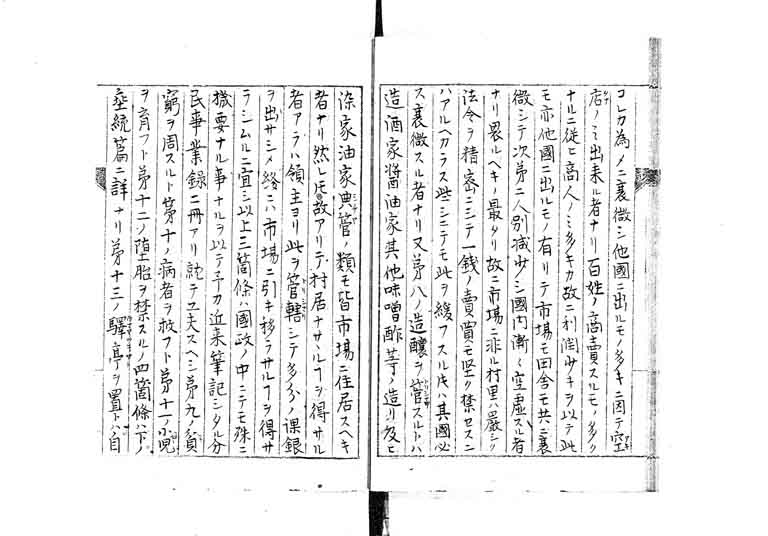 コレカ為メニ衰微シ他國ニ出ルモノ多キニ因テ空
店ノミ出来ル者ナリ百姓ノ商賣スルモノ多ク
ナルニ従ヒ商人ノミ多キカ故ニ利潤少キヲ以テ此
モ亦他國ニ出ルモノ有リテ市場モ田舎モ共ニ衰
微シテ次第ニ人別減少シ國内漸々空虚スル者
ナリ畏ルヘキノ最タリ故ニ市場ニ非ル村里ハ嚴シク
法令ヲ精密ニシテ一錢ノ賣買モ堅ク禁セスンハ
ハアルヘカラス些シニテモ此ヲ緩フスル片ハ其國必
ス衰微スル者ナリ又第八ノ造釀ヲ管スルトハ
造酒家醬油家其他味噌酢等ノ造リ及ヒ
染家油家典管ノ類モ皆市場ニ住居スヘキ
者ナリ然レ𪜈故アリテ村居ナサヽルヿヲ得サル
者アラハ領主ヨリ此ヲ管轄シテ多分ノ課銀
ヲ出サシメ終ニハ市場ニ引キ移ラサルヿヲ得サ
ラシムルニ宜シ以上三箇條ハ國政ノ中ニテモ殊ニ
機要ナル事ナルヲ以テ予カ近来筆記シタル分
民事業録二冊アリ就テ工夫スヘシ第九ノ貧
窮ヲ周スルト第十ノ病者ヲ救フト第十一ノ小兒
ヲ育フト第十二ノ堕胎ヲ禁スルノ四箇條ハ下ノ
垂統篇ニ詳ナリ第十三ノ驛亭ヲ置トハ自